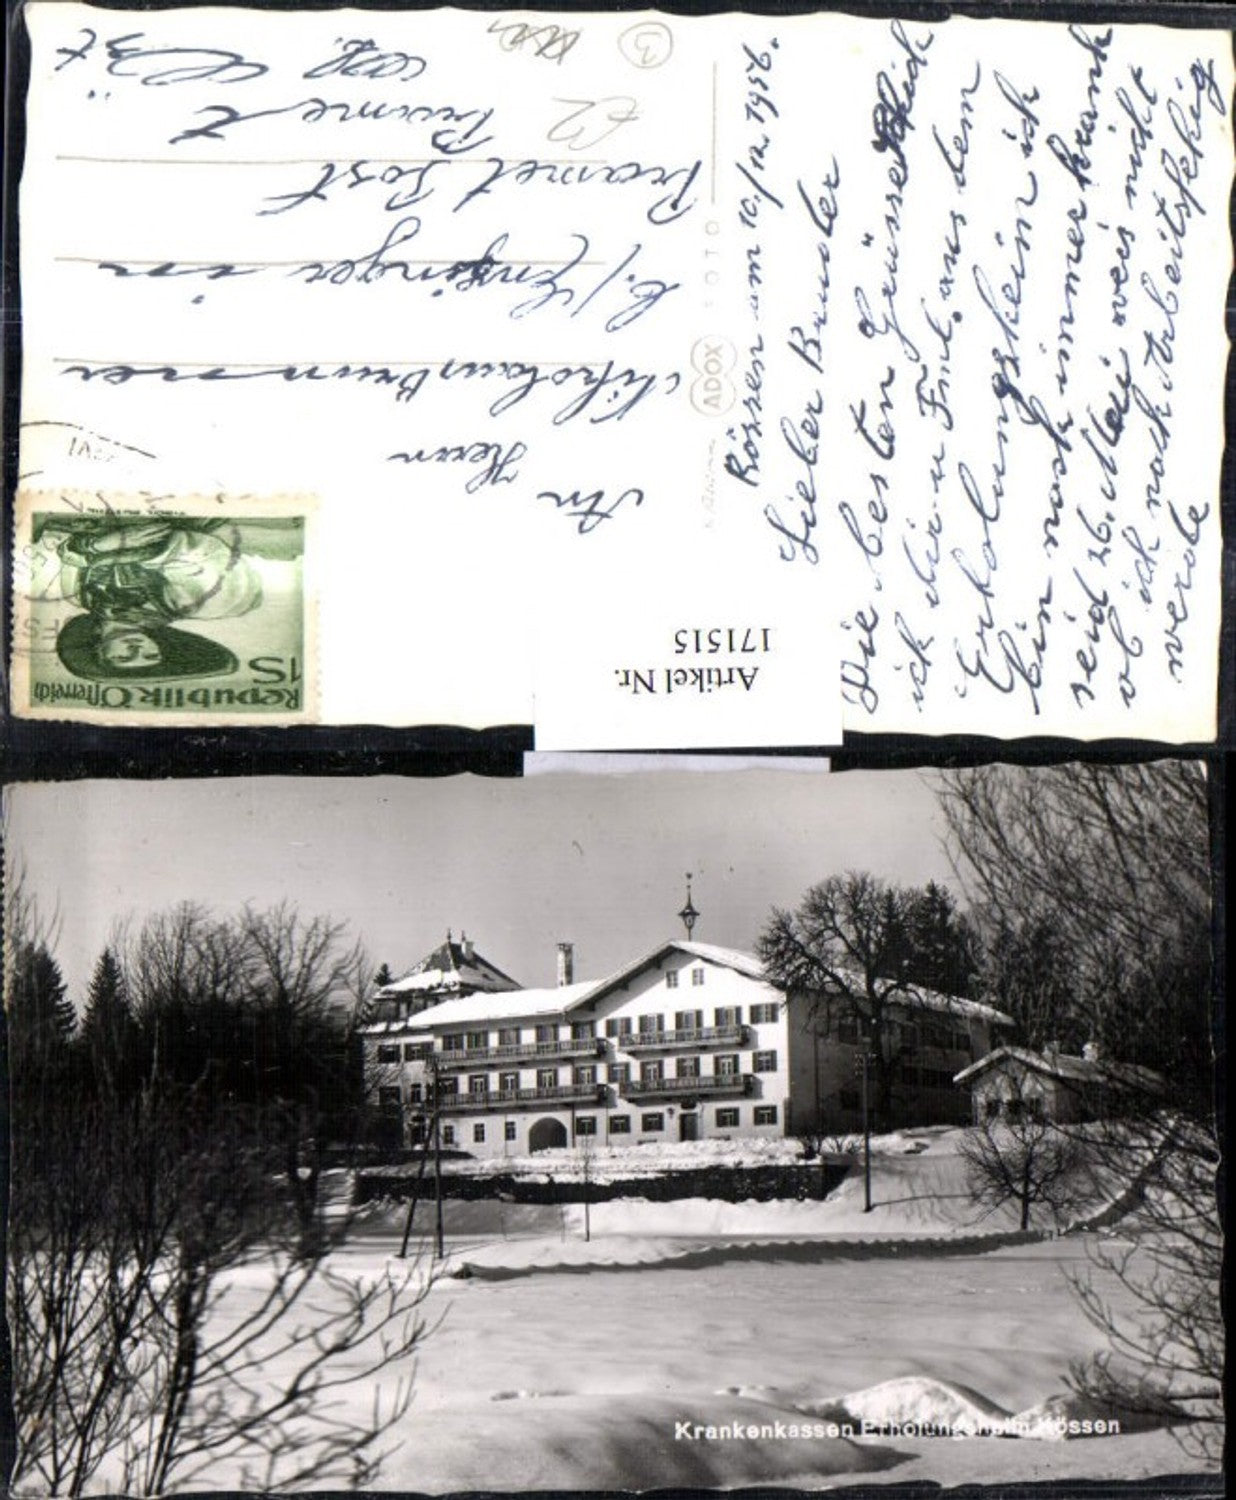 Kössen am 10./12. 1956.
Lieber Bruder
Die besten Grüsse schick
ich dir u Fml. aus dem
Erholungsheim ich
bin noch immer krank
seid 26. Mai weis nicht
ob ich noch Arbeitsfehig
werde
ADOX FOTO
An
Herrn
Nikolaus Brunner
b./Ensinger in
Pramet Post
Pramet
Öst
3
Republik Österreich
1S
Artikel Nr.
171515
Krankenkassen Erholungsheim Kössen